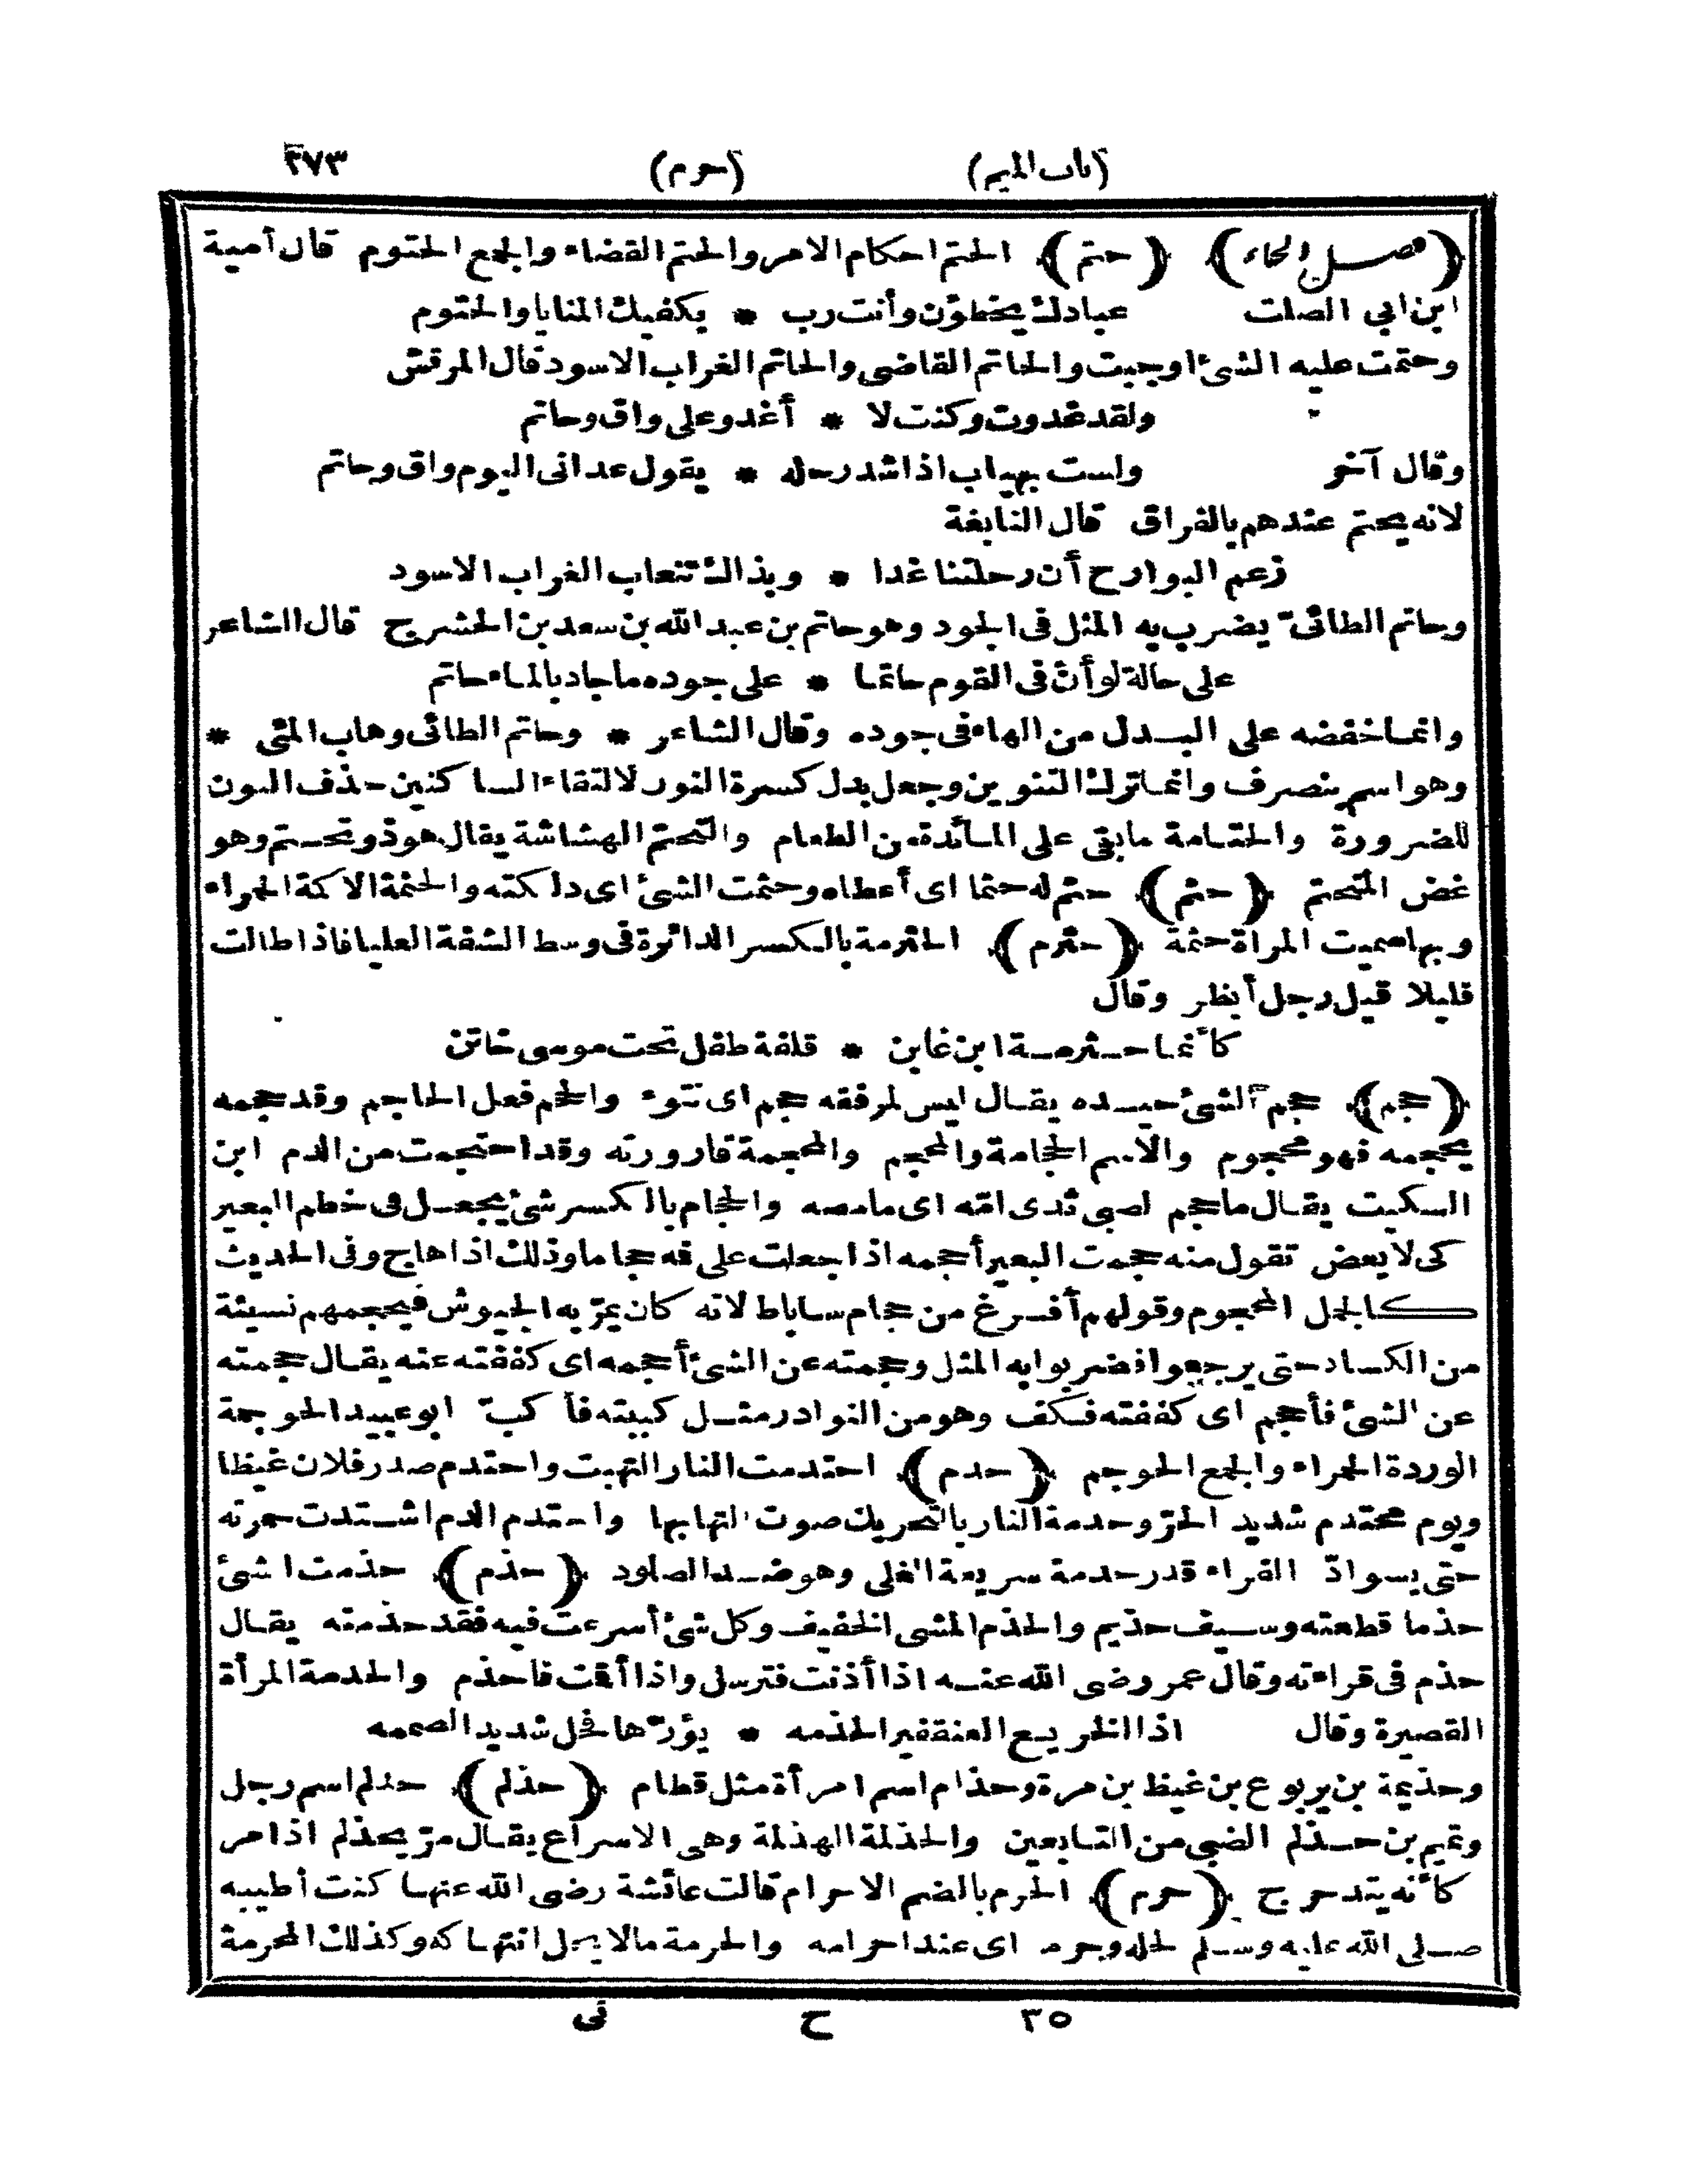 (باب الميم) (حرم) ٢٧٣
﴿فصل الحاء﴾ ﴿حتم﴾ الحتم احكام الامر والحتم القضاء والجمع الحتوم قال أمية
ابن ابي الصلت عبادك يخطؤن وأنت رب * بكفيك المنايا والحتوم
وحتمت عليه الشئ اوجبت والحاتم القاضى والحاتم الغراب الاسود قال المرقش
ولقد غدوت وكنت لا * أغدو على واق وحاتم
وقال آخر ولست بهياب اذا شد رحله * يقول عدانى اليوم واق وحاتم
لانه يحتم عندهم بالفراق قال النابغة
زعم البوارح أن رحلتنا غدا * وبذالك تنعاب الغراب الاسود
وحاتم الطائىّ يضرب به المثل فى الجود وهو حاتم بن عبد الله بن سعد بن الحشرج قال الشاعر
على حالة لو أنّ فى القوم حاتما * على جوده ما جاد بالماء حاتم
وانما خفضه على البدل من الهاء فى جوده وقال الشاعر * وحاتم الطائى وهاب المئى *
وهو اسم ينصرف وانما ترك التنوين وجعل بدل كسرة النون لالتقاء الساكنين حذف النون
للضرورة والحتامة ما بقى على المائدة من الطعام والتحتم الهشاشة يقال هو ذو تحتم وهو
غض المتحتم ﴿حثم﴾ حثم له حثما اى أعطاه وحثمت الشئ اى دلكته والحثمة الاكمة الحمراء
وبها سميت المراة حثمة ﴿حثرم﴾ الحثرمة بالكسر الدائرة فى وسط الشفة العليا فاذا طالت
قليلا قيل رجل أبظر وقال
كأنما حثرمة ابن غابن * قلفة طفل تحت موسى خاتن
﴿حجم﴾ حجم الشئ حيده يقال ليس لمرفقه حجم اى نتوء والحجم فعل الحاجم وقد حجمه
يحجمه فهو محجوم والاسم الحجامة والمحجم والمحجمة قارورته وقد احتجمت من الدم ابن
السكيت يقال ما حجم الصبي ثدى امّه اى ما مصه والحجام بالكسر شئ يجعل فى خطم البعير
كى لا يعض تقول منه حجمت البعير أحجمه اذا جعلت على فه حجاما وذلك اذا هاج وفى الحديث
كالجمل المحجوم وقولهم أفرغ من حجام ساباط لانه كان يمرّ به الجيوش فيحجمهم نسيئة
من الكساد حتى يرجعوا فضربوا به المثل وحجمته عن الشئ أحجمه اى كففته عنه يقال حجمته
عن الشئ فأحجم اى كففته فكف وهو من النوادر مثل كببته فأكبّ ابو عبيد الحوجمة
الوردة الحمراء والجمع الحوجم ﴿حدم﴾ احتدمت النار التهبت واحتدم صدر فلان غيظا
ويوم محتدم شديد الحرّ وحدمة النار بالتحريك صوت التهابها واحتدم الدم اشتدت حمرته
حتى يسوادّ الفراء قدر حدمة سريعة الغلى وهو ضد الصلود ﴿حذم﴾ حذمت الشئ
حذما قطعته وسيف حذيم والحذم المشى الخفيف وكل شئ أسرعت فيه فقد حذمته يقال
حذم فى قراءته وقال عمر رضى الله عنه اذا أذنت فترسل واذا أقمت فاحذم والحذمة المرأة
القصيرة وقال اذا الخريع العنقفير الحذمه * يؤرّها فحل شديد الصممه
وحذيمة بن يربوع بن غيظ بن مرة وحذام اسم امرأة مثل قطام ﴿حذلم﴾ حذلم اسم رجل
وتميم بن حذلم الضبي من التابعين والحذلمة الهذلمة وهى الاسراع يقال مرّ يحذلم اذا مر
كأنه يتدحرج ﴿حرم﴾ الحرم بالضم الاحرام قالت عائشة رضى الله عنها كنت أطيبه
صلى الله عليه وسلم لحله وحرمه اى عند احرامه والحرمة مالا يحل انتهاكه وكذلك المحرمة
٣٥ ح نى